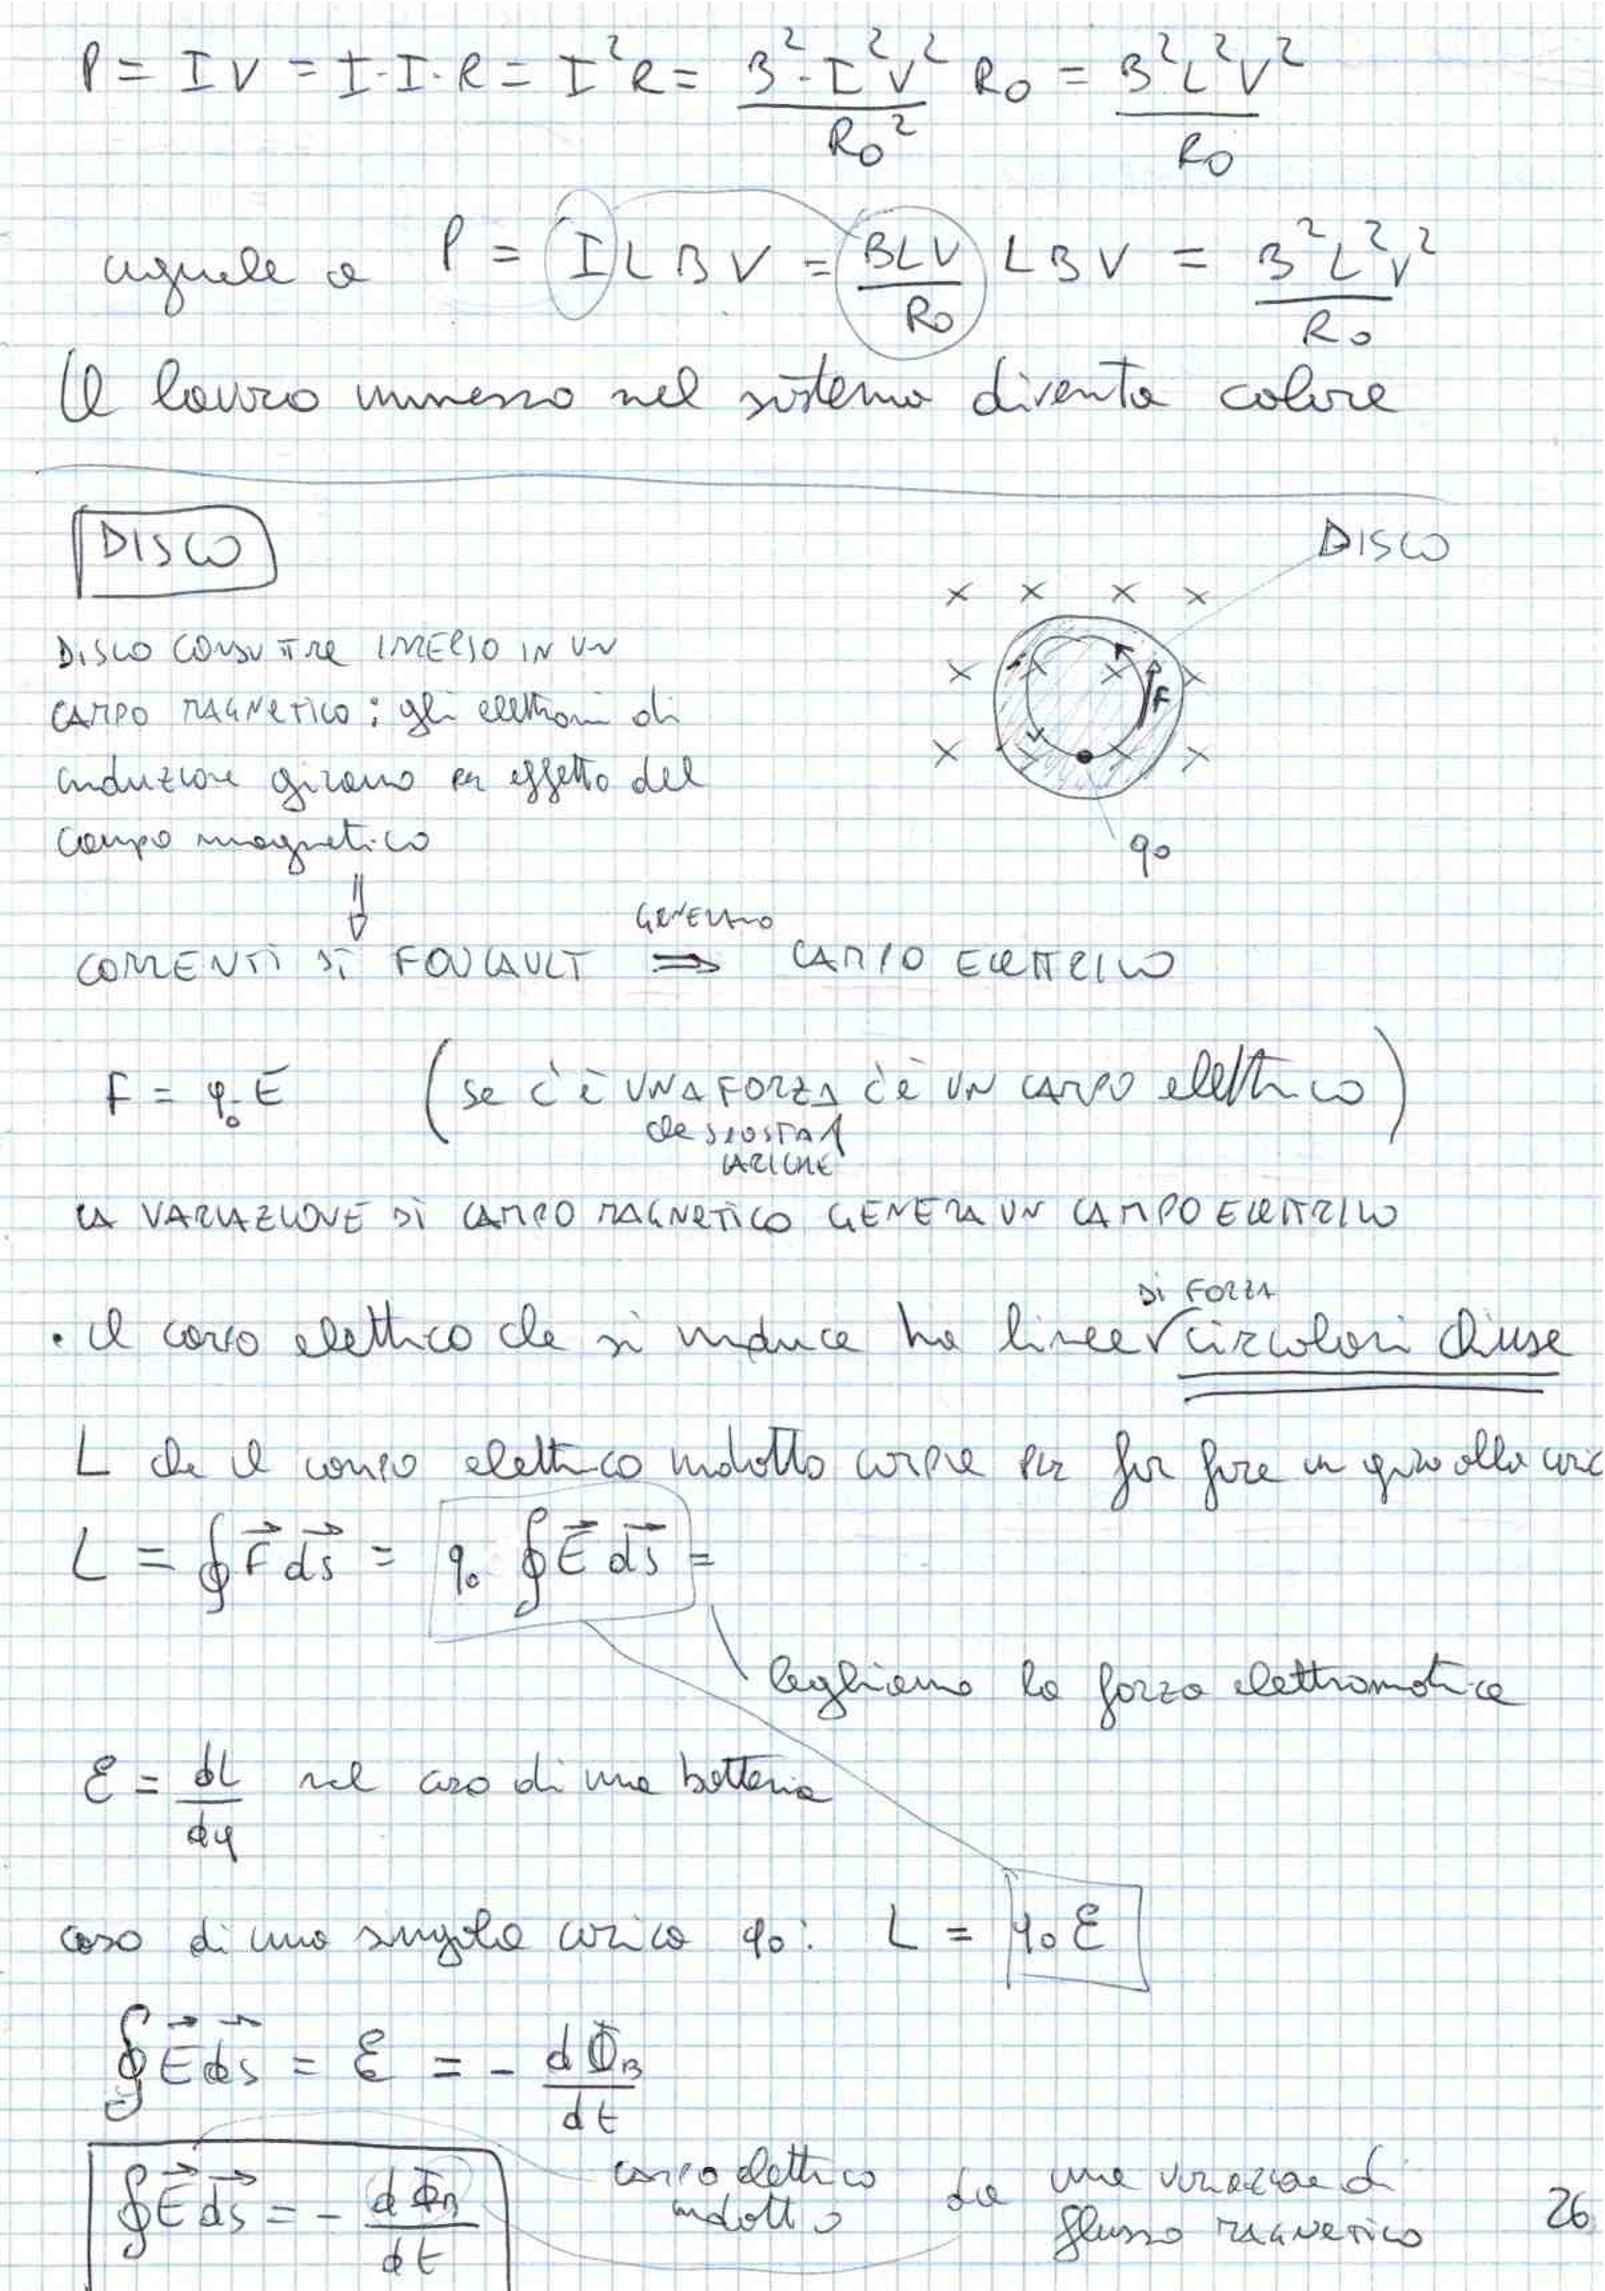 P = IV = I·I·R = I²R = B²·L²V²/R₀² R₀ = B²L²V²/R₀
uguale a P = I L B V = BLV/R₀ L B V = B²L²V²/R₀
Il lavoro immesso nel sistema diventa calore
DISCO
DISCO
DISCO CONDUTTORE IMMERSO IN UN
CAMPO MAGNETICO: gli elettroni di
induzione girano per effetto del
campo magnetico
F
q₀
CORRENTI DI FOUCAULT ⇒ GENERANO CAMPO ELETTRICO
F = q₀E (se c'è UNA FORZA che SPOSTA CARICHE c'è UN CAMPO elettrico)
LA VARIAZIONE DI CAMPO MAGNETICO GENERA UN CAMPO ELETTRICO
• il campo elettrico che si induce ha linee DI FORZA circolari chiuse
L che il campo elettrico indotto compie per far fare un giro alla caric
L = ∮F⃗ ds⃗ = q₀ ∮E⃗ ds⃗ =
leghiamo la forza elettromotrice
ℰ = dL/dq nel caso di una batteria
caso di una singola carica q₀: L = q₀ℰ
∮E⃗ ds⃗ = ℰ = - dΦB/dt
∮E⃗ ds⃗ = - dΦB/dt campo elettrico indotto da una variazione di flusso MAGNETICO
26